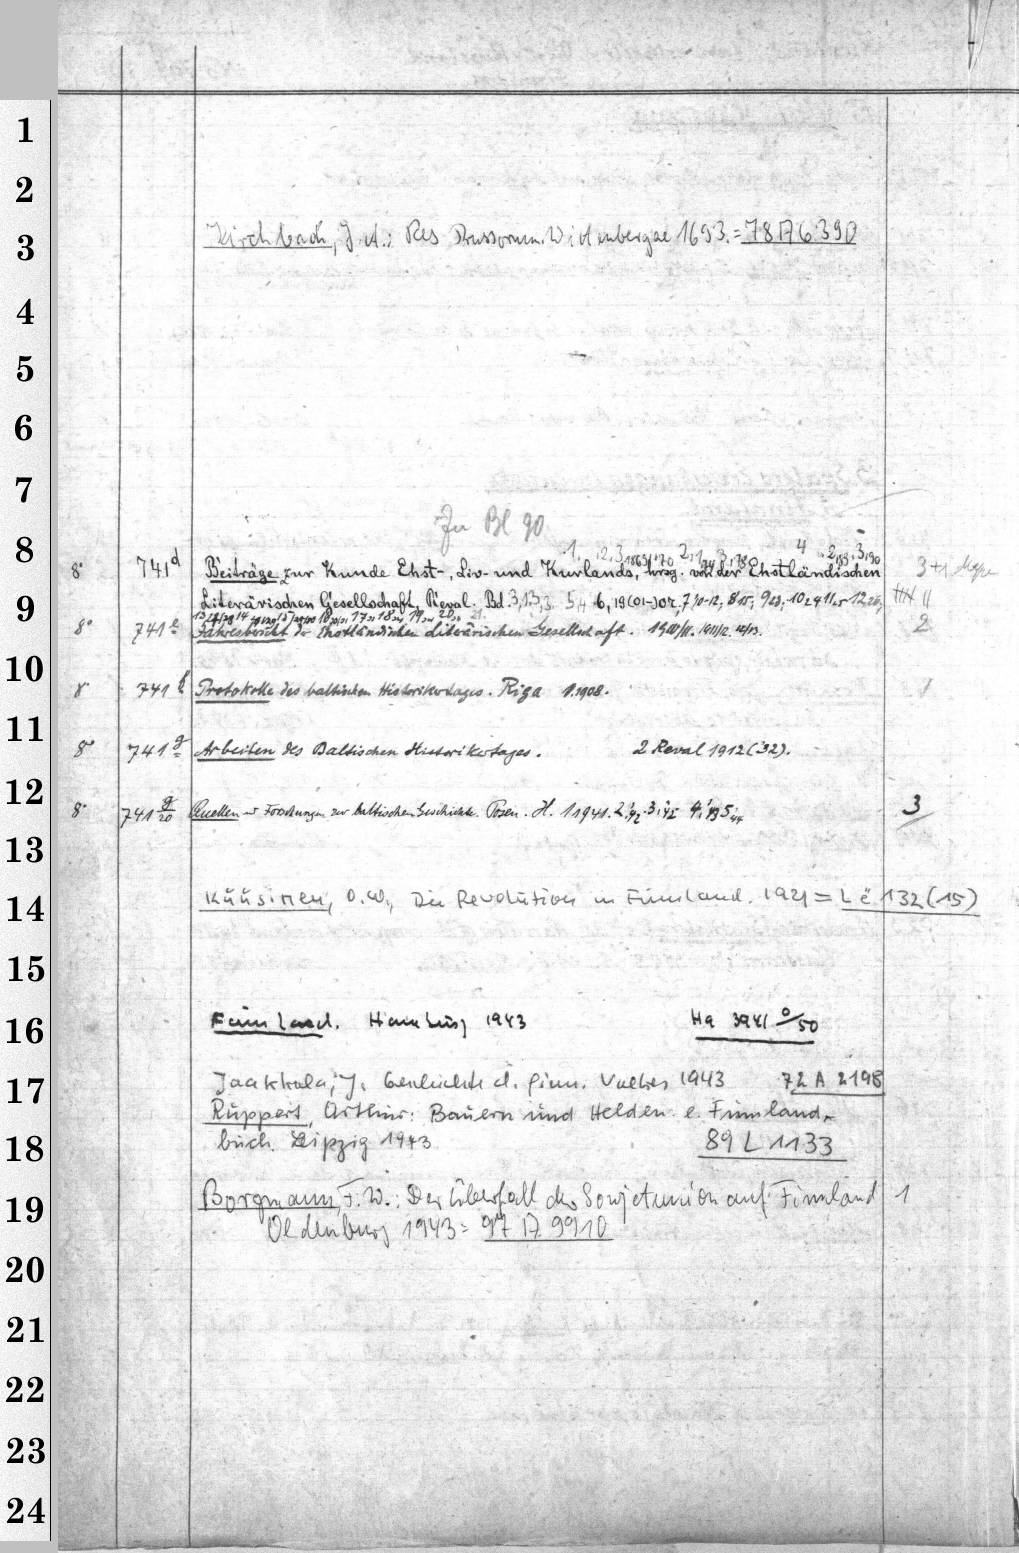 1
2
3 Kirchbach, J. A.: Res Prussorum. Wittenbergae 1693. = 78 A 6390
4
5
6
7
Zu Bl 90
8 8° 741 d Beiträge zur Kunde Ehst-, Liv- und Kurlands, hrsg. von der Ehstländischen 3 + 1 Mappe
9 Literärischen Gesellschaft, Reval. Bd. 3,
8° 741 e Jahresbericht der Ehstländischen Literärischen Gesellschaft. 2
10 8° 741 f Protokolle des baltischen Historikertages. Riga 1.1908. 1
11 8° 741 g Arbeiten des Baltischen Historikertages. 2 Reval 1912 ('32).
12 8° 741 g/20 Quellen u Forschungen zur baltischen Geschichte. Posen. H. 1 1941. 2, '42. 3, '42 4, '43 5, 44 3
13
14 Kuusinen, O. W., Die Revolution in Finnland. 1921 = L ë 132 (15)
15
16 Finnland. Hamburg 1943 Ha 3941 0/50
17 Jaakkola, J. Geschichte d. finn. Volkes 1943 72 A 2198
Ruppert, Arthur: Bauern und Helden. e. Finnland-
18 buch. Leipzig 1943 89 L 1133
19 Borgmann, F. W.: Der Überfall der Sowjetunion auf Finnland 1
Oldenburg 1943 = 97 A 9910
20
21
22
23
24